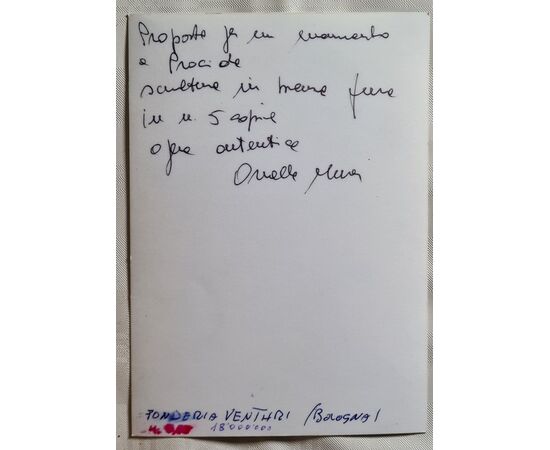 Proposta per un monumento
a Procida
scultura in terra
in n. 5 copie
opera autentica
FONDERIA VENTURI /BOLOGNA/
18.000.000